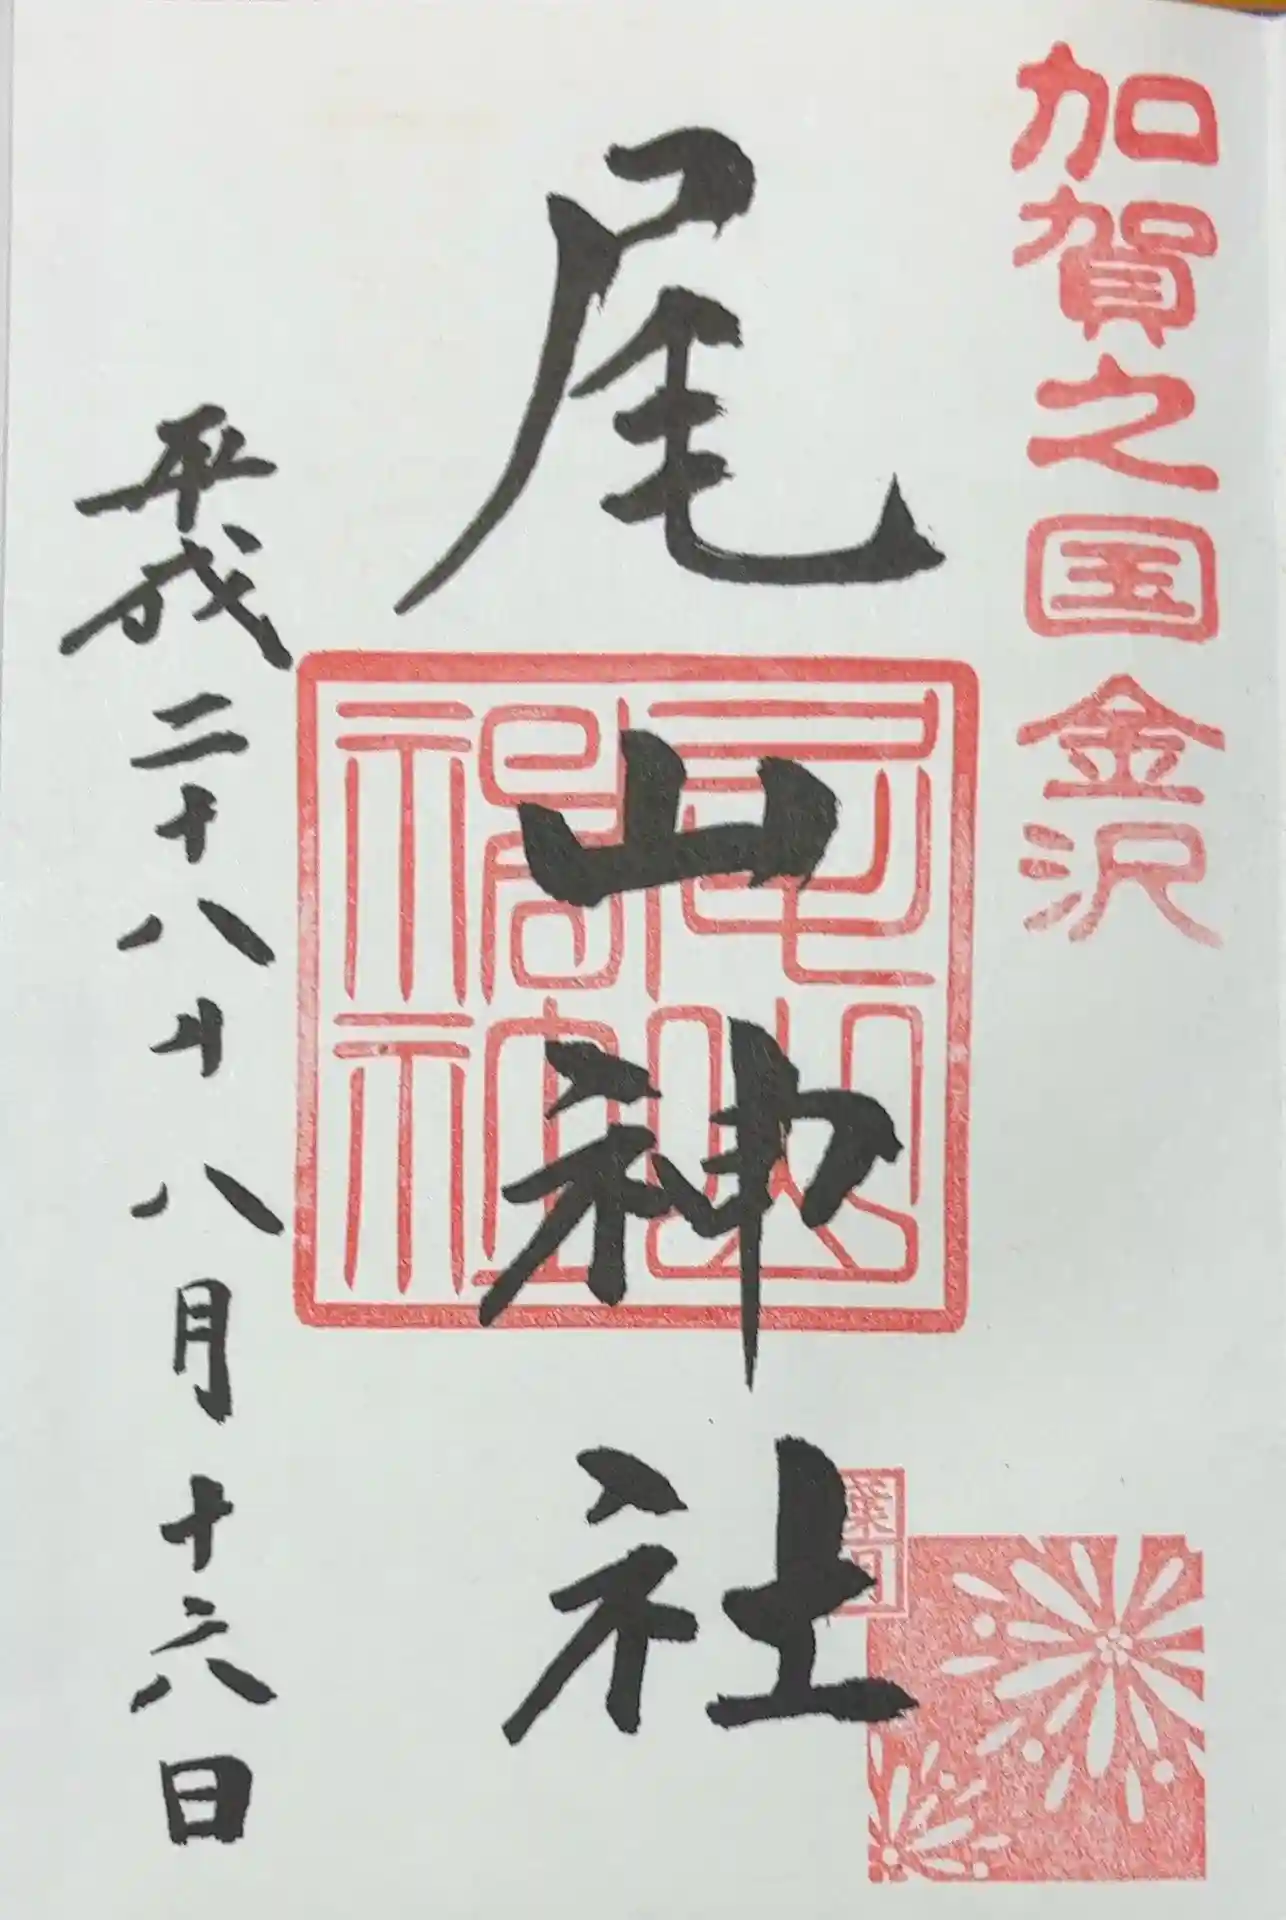 加賀之国金沢
尾山神社
尾山神社
葉月
平成二十八年八月十六日